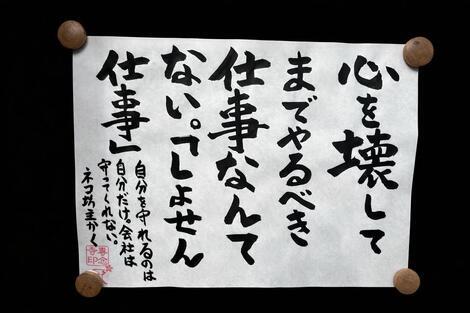 心を壊して
までやるべき
仕事なんて
ない。「しょせん
仕事」
自分を守れるのは
自分だけ。会社は
守ってくれない。
ネコ坊主かく
専念
寺印